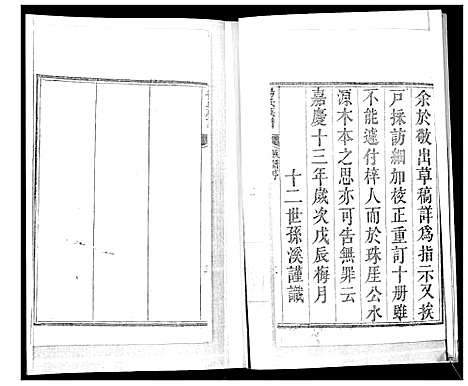 余於敬出草稿詳為指示又挨
戶採訪細加校正重訂十册雖
不能遽付梓人而於珠崖公水
源木本之思亦可告無罪云
嘉慶十三年歲次戊辰梅月
十二世孫溪謹識